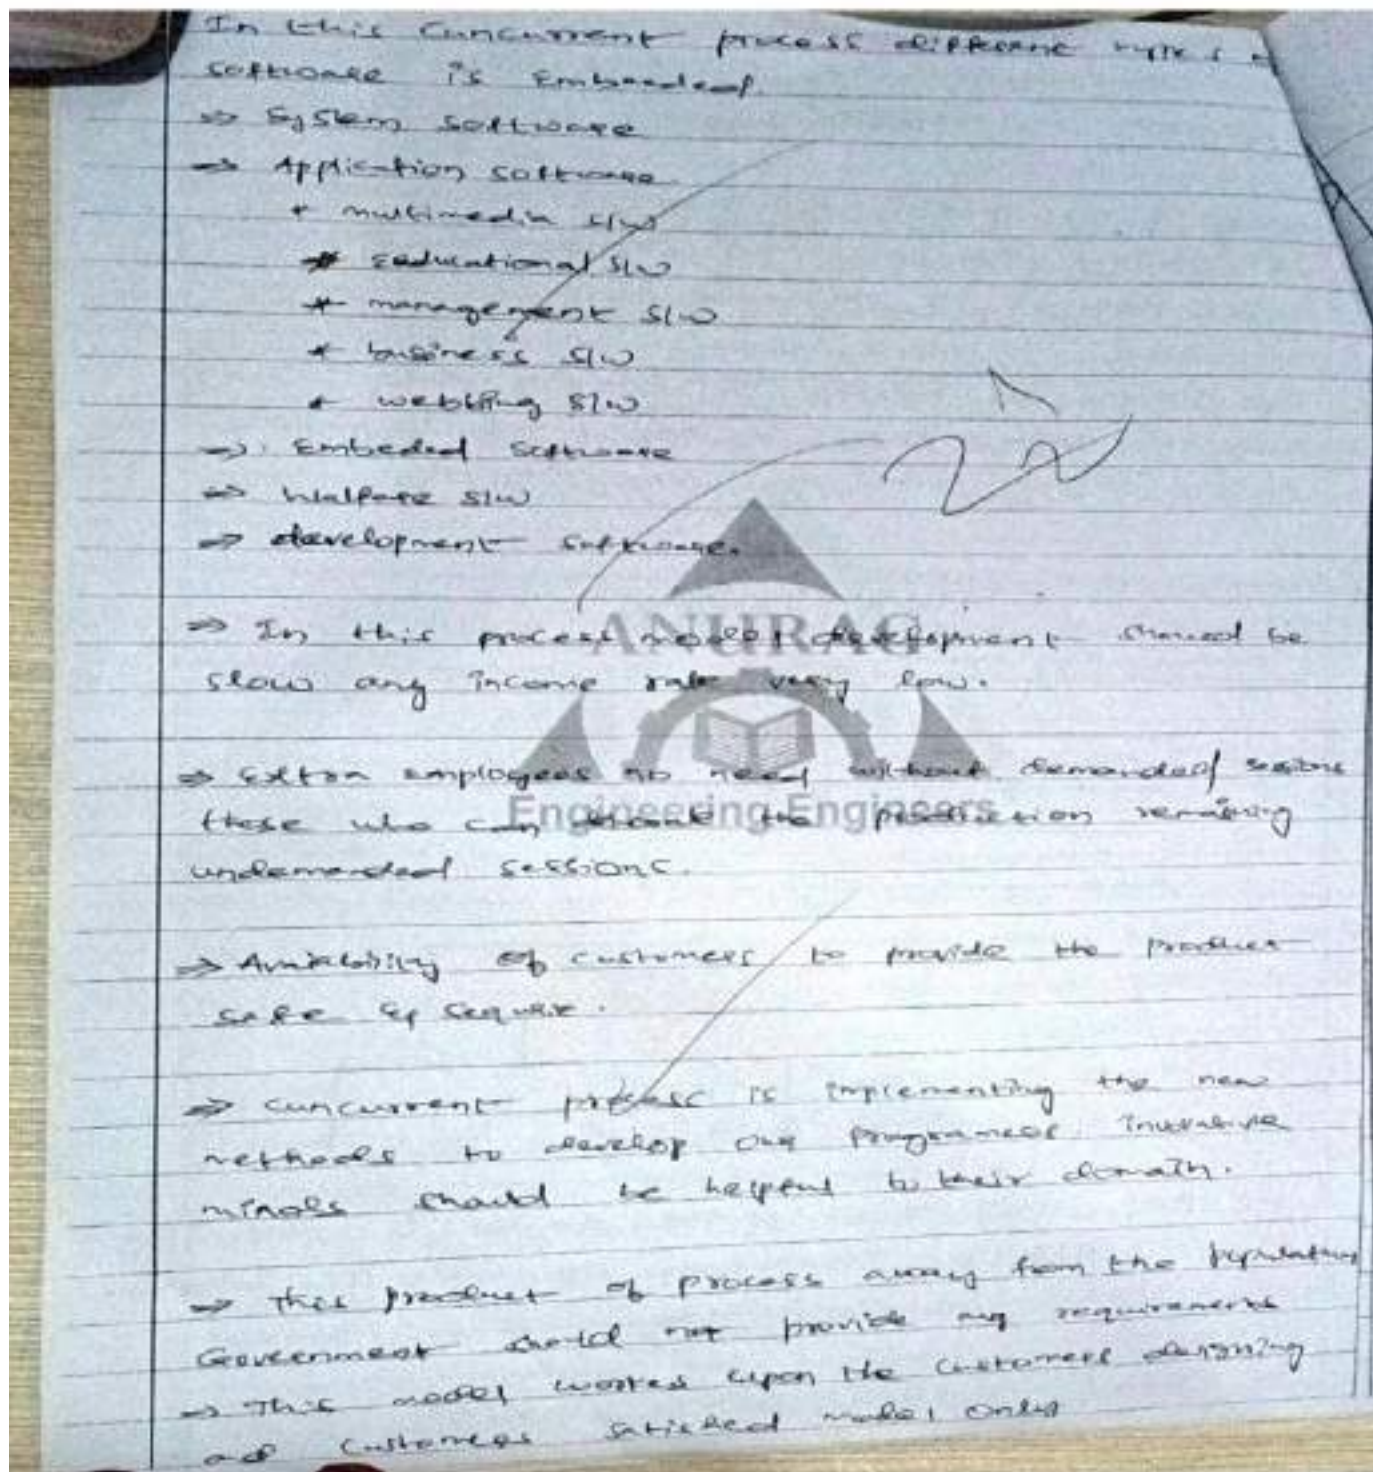 In this cuncurrent process different types of
software is Embeeded.
⇒ System software
⇒ Application software.
* multimedia s/w
* Eeducational s/w
* management s/w
* business s/w
* webbing s/w
⇒ Embeded software
⇒ Walfare s/w
⇒ development software.
ANURAG
⇒ In this process model development should be
slow any income rate very low.
⇒ Extra employees no need without demanded sessions
Engineering Engineers
these who can the production remaining
undemanded sessions.
⇒ Availability of customers to provide the product
safe & sequre.
⇒ cuncurrent process is implementing the new
methods to develop our
minds should be helpful to their domain.
⇒ This product of process away from the
Government should not provide any requirements
⇒ This model worked upon the customers designing
and customers satisfied model only